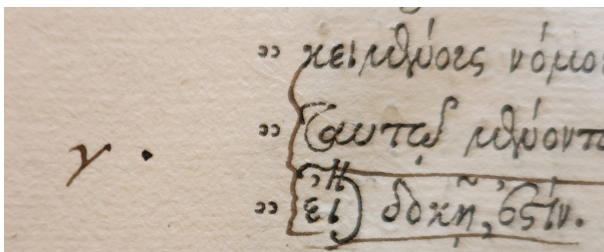 κειμένοις νόμοι
ταυτῷ μένοντ
γ .
εἰ δοκῇ, ἐστίν.